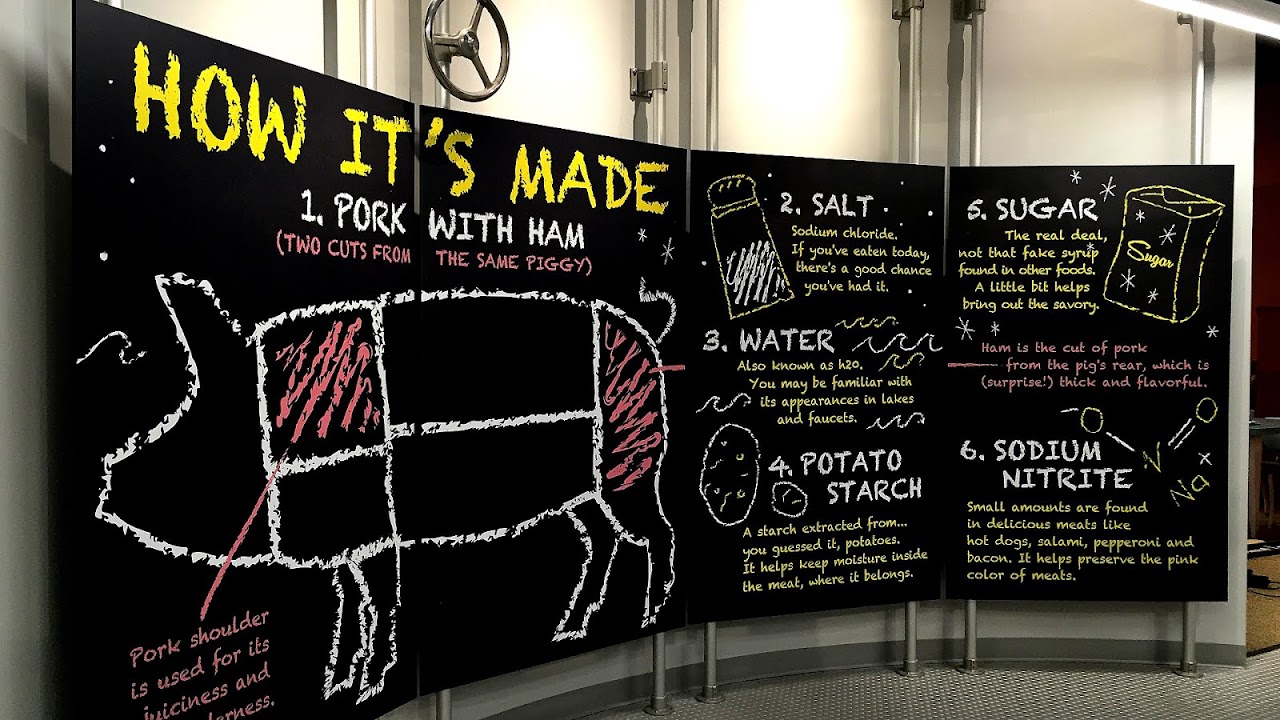 HOW IT'S MADE
1. PORK WITH HAM
(TWO CUTS FROM THE SAME PIGGY)
Pork shoulder
is used for its
juiciness and
2. SALT
Sodium chloride.
If you've eaten today,
there's a good chance
you've had it.
3. WATER
Also known as h20.
You may be familiar with
its appearances in lakes
and faucets.
4. POTATO
STARCH
A starch extracted from...
you guessed it, potatoes.
It helps keep moisture inside
the meat, where it belongs.
5. SUGAR
The real deal,
not that fake syrup
found in other foods.
A little bit helps
bring out the savory.
Sugar
Ham is the cut of pork
from the pig's rear, which is
(surprise!) thick and flavorful.
6. SODIUM
NITRITE
Small amounts are found
in delicious meats like
hot dogs, salami, pepperoni and
bacon. It helps preserve the pink
color of meats.
O
O
N
Na